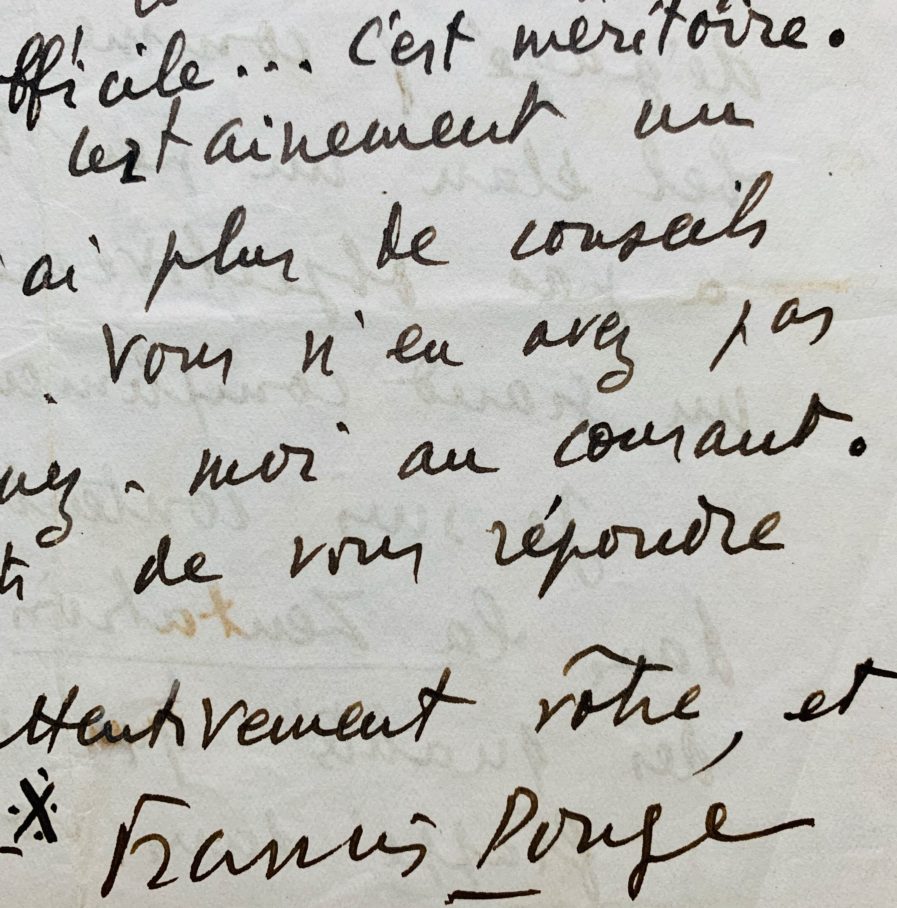 fficile... C'est méritoire.
certainement un
'ai plus de conseils
Vous n'en avez pas
nez-moi au courant.
de vous répondre
ttentivement vôtre, et
Francis Ponge